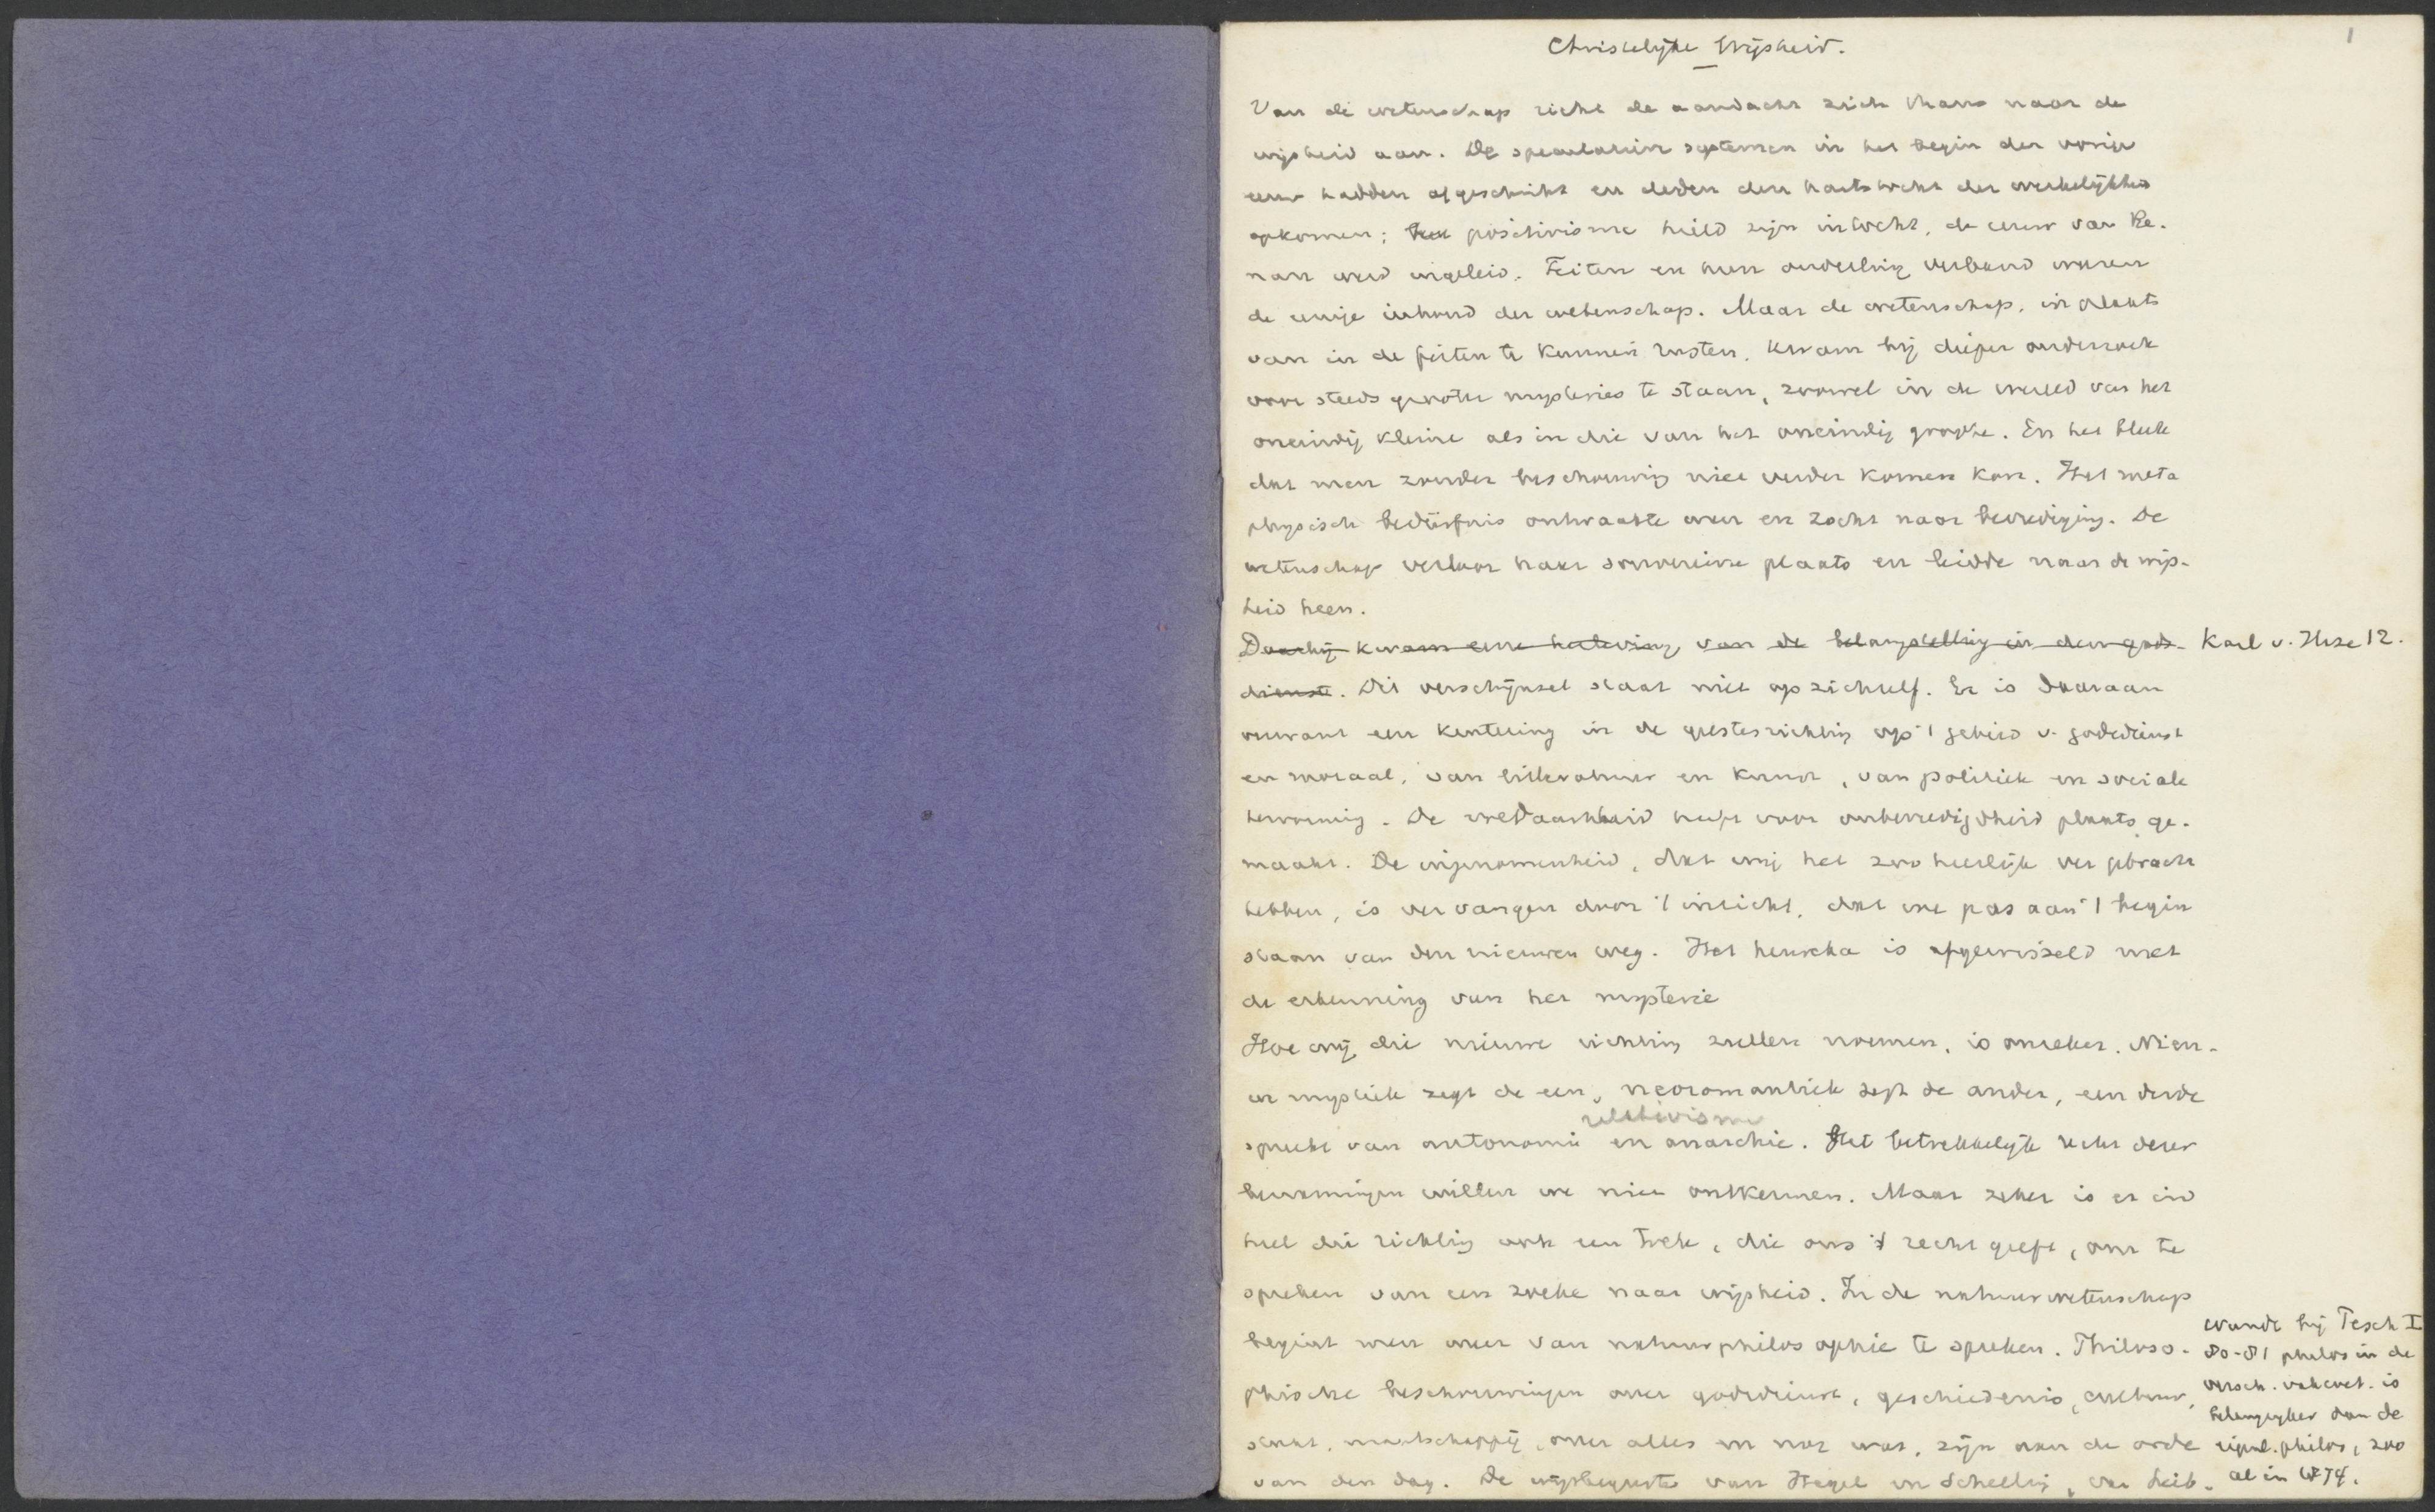 1
Christelijke Wijsheid.
Van de wetenschap richt de aandacht zich thans naar de
wijsheid aan. De speculatieve systemen in het begin der vorige
eeuw hadden afgeschrikt en deden den hartstocht der werkelijkheid
opkomen; het positivisme hield zijn intocht, de eeuw van Re-
nan werd ingeleid. Feiten en hun onderling verband waren
de eenige inhoud der wetenschap. Maar de wetenschap, in plaats
van in de feiten te kunnen rusten, kwam bij dieper onderzoek
voor steeds grooter mysteries te staan, zoowel in de wereld van het
oneindig kleine als in die van het oneindig groote. En het bleek
dat men zonder beschouwing niet verder komen kon. Het meta
physisch bedürfnis ontwaakte weer en zocht naar bevrediging. De
wetenschap verloor haar souvereine plaats en leidde naar de wijs-
heid heen.
Daarbij kwam eene herleving van de belangstelling in den gods- Karl v. Hase 12.
dienst. Dit verschijnsel staat niet op zichzelf. Er is daaraan
verwant een kentering in de geestesrichting op 't gebied v. godsdienst
en moraal, van litteratuur en kunst, van politiek en sociale
hervorming. De voldaanheid heeft voor onbevredigdheid plaats ge-
maakt. De ingenomenheid, dat wij het zoo heerlijk ver gebracht
hebben, is vervangen door 't inzicht, dat we pas aan 't begin
staan van den nieuwen weg. Het heureka is afgewisseld met
de erkenning van het mysterie
Hoe wij die nieuwe richting zullen noemen, is onzeker. Nieu-
we mystiek zegt de een, neoromantiek zegt de ander, een derde
relativisme
spreekt van autonomie en anarchie. Het betrekkelijk recht dezer
benamingen willen we niet ontkennen. Maar zeker is er in
heel die richting ook een trek, die ons 't recht geeft, om te
spreken van een zoeken naar wijsheid. In de natuurwetenschap
begint men weer van natuurphilosophie te spreken. Philoso-
phische beschouwingen over godsdienst, geschiedenis, cultuur,
staat, maatschappij, over alles en nog wat, zijn aan de orde
van den dag. De wijsbegeerte van Hegel en Schelling, van Leib-
Wundt bij Pesch I
80-81 philos in de
versch. vakwet. is
belangrijker dan de
eigenl. philos, zoo
al in 1874.